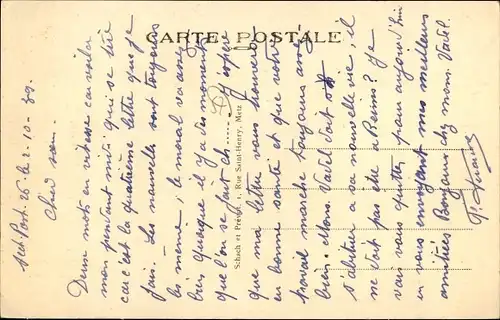 CARTE POSTALE
Schoch et Prevot, 1, Rue Saint-Henry, Metz
Sect Post. 26 le 2-10-39.
Cher
Deux mots en vitesse car voilà
mon pendant midi qui se tire
car c'est la quatrième lettre que je
fais. Les nouvelles sont toujours
les même, le moral va assez
bien quoique il y a des moments
qu'on se fait ch...... J'espère
que ma lettre vous trouvera
en bonne santé et que votre
travail marche toujours assez
bien. Mons. Vatel doit
s'abituer à sa nouvelle vie, il
ne doit pas être à Reims? Je
vais vous quitter pour aujourd'hui
en vous envoyant mes meilleurs
amitiés Bonjours chez Mons. Vatel.